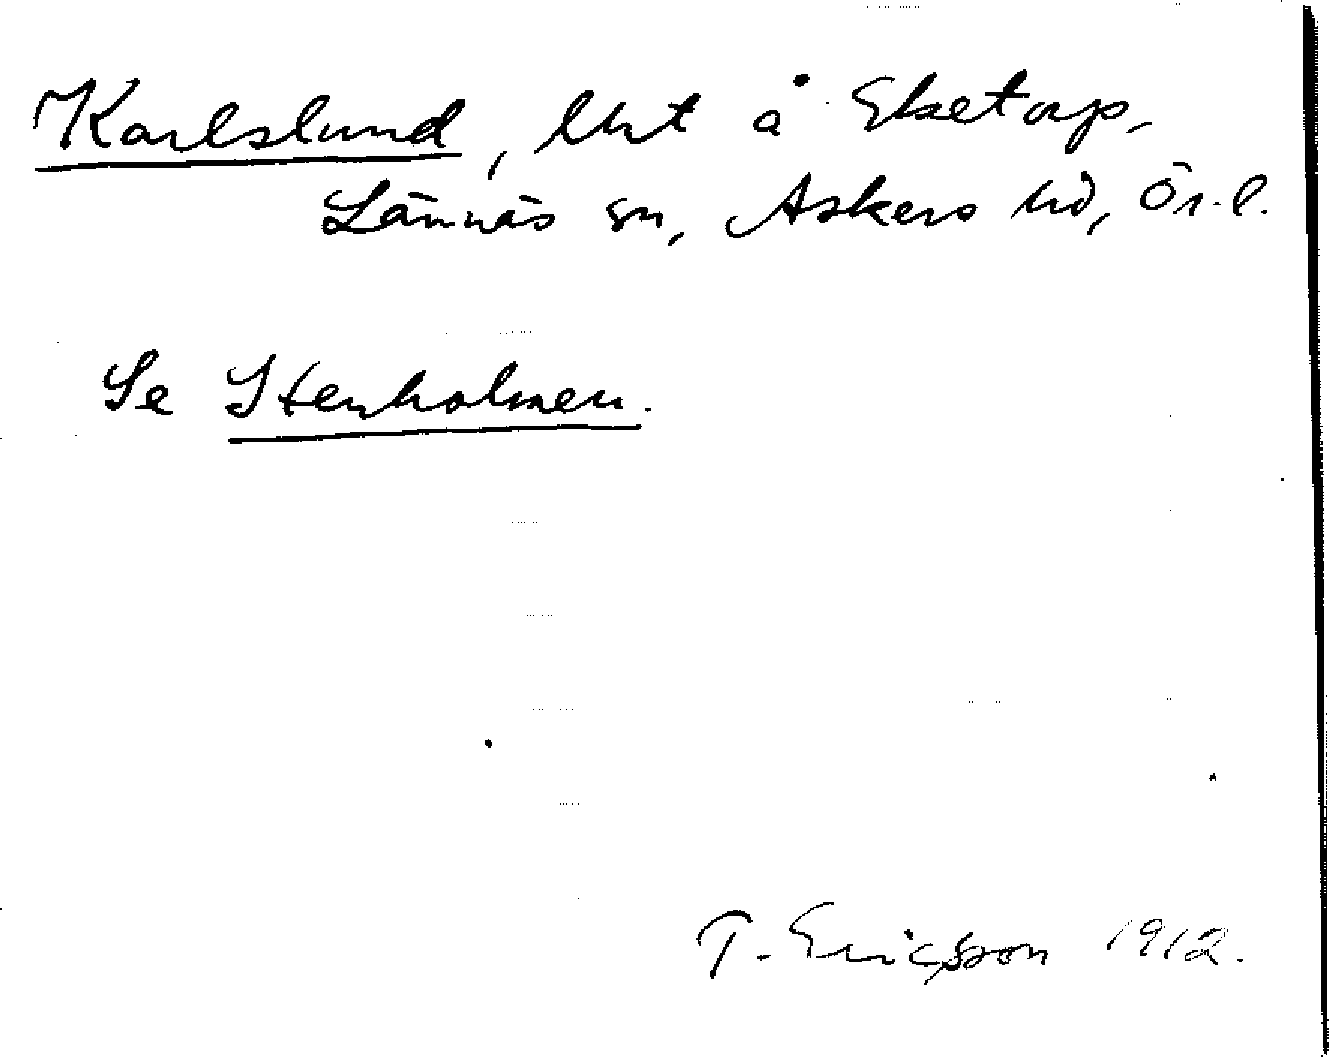 Karlslund, lht å Eketorp,
Lännäs sn, Askers hd, Ör. l.
Se Stenholmen.
T. Ericsson 1912.